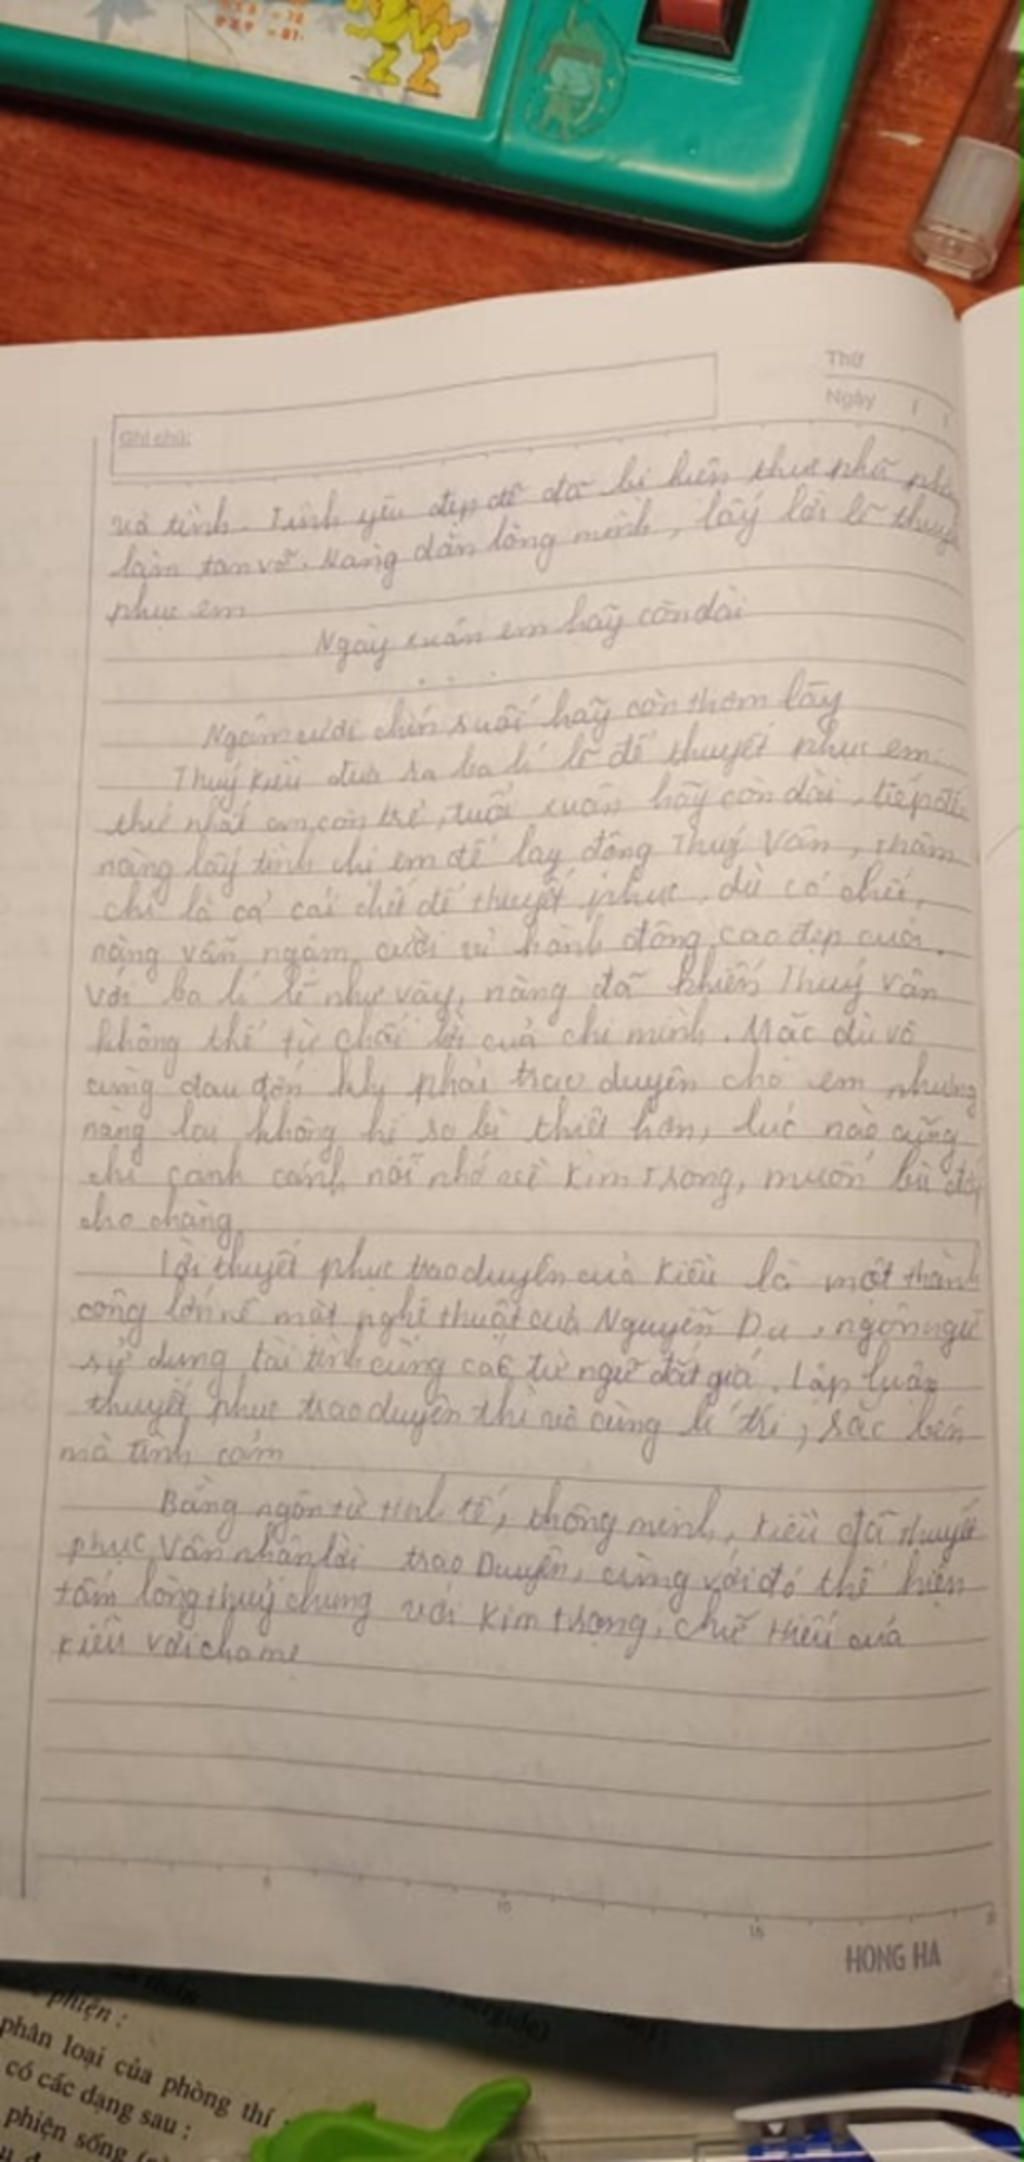 = 72
9 x 9 = 81
Thứ
Ngày / /
Ghi chú:
và tình. Tình yêu đẹp đẽ đã bị hiện thực phũ
làm tan vỡ. Nàng dằn lòng mình, lấy lời lẽ thuyết
phục em
Ngày xuân em hãy còn dài
. . . .
Ngậm cười chín suối hãy còn thơm lây
Thuý Kiều đưa ra ba lí lẽ để thuyết phục em:
thứ nhất em còn trẻ, tuổi xuân hãy còn dài, tiếp đến
nàng lấy tình chị em để lay động Thuý Vân, thậm
chí là cả cái chết để thuyết phục, dù có chết,
nàng vẫn ngậm cười vì hành động cao đẹp cuối.
Với ba lí lẽ như vậy, nàng đã khiến Thuý Vân
không thể từ chối lời của chị mình. Mặc dù vô
cùng đau đớn khi phải trao duyên cho em nhưng
nàng lại không hề so bì thiệt hơn, lúc nào cũng
chỉ canh cánh nỗi nhớ về Kim Trọng, muốn bù đắp
cho chàng
Lời thuyết phục trao duyên của Kiều là một thành
công lớn về mặt nghệ thuật của Nguyễn Du, ngôn ngữ
sử dụng tài tình cùng các từ ngữ đắt giá. Lập luận
thuyết phục trao duyên thì vô cùng lí trí, sắc bén
mà tình cảm
Bằng ngôn từ tinh tế, thông minh, Kiều đã thuyết
phục Vân nhận lời trao Duyên, cùng với đó thể hiện
tấm lòng thuỷ chung với Kim trọng, chữ Hiếu của
Kiều với cha mẹ
5 10 15
HONG HA
phiện :
phân loại của phòng thí
có các dạng sau :
phiện sống